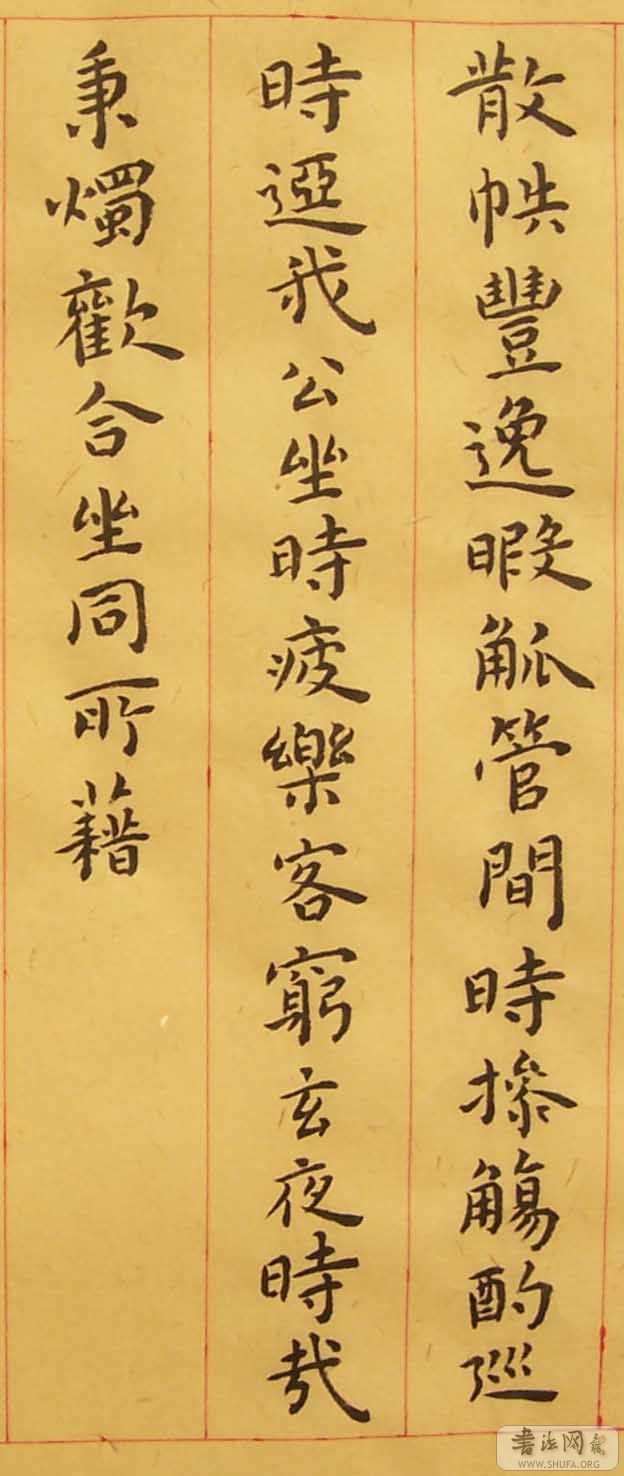 散帙豐逸暇觚管間時操觴酌巡
時逕我公坐時疲樂客窮玄夜時哉
秉燭歡合坐同所藉
書法网
WWW.SHUFA.ORG